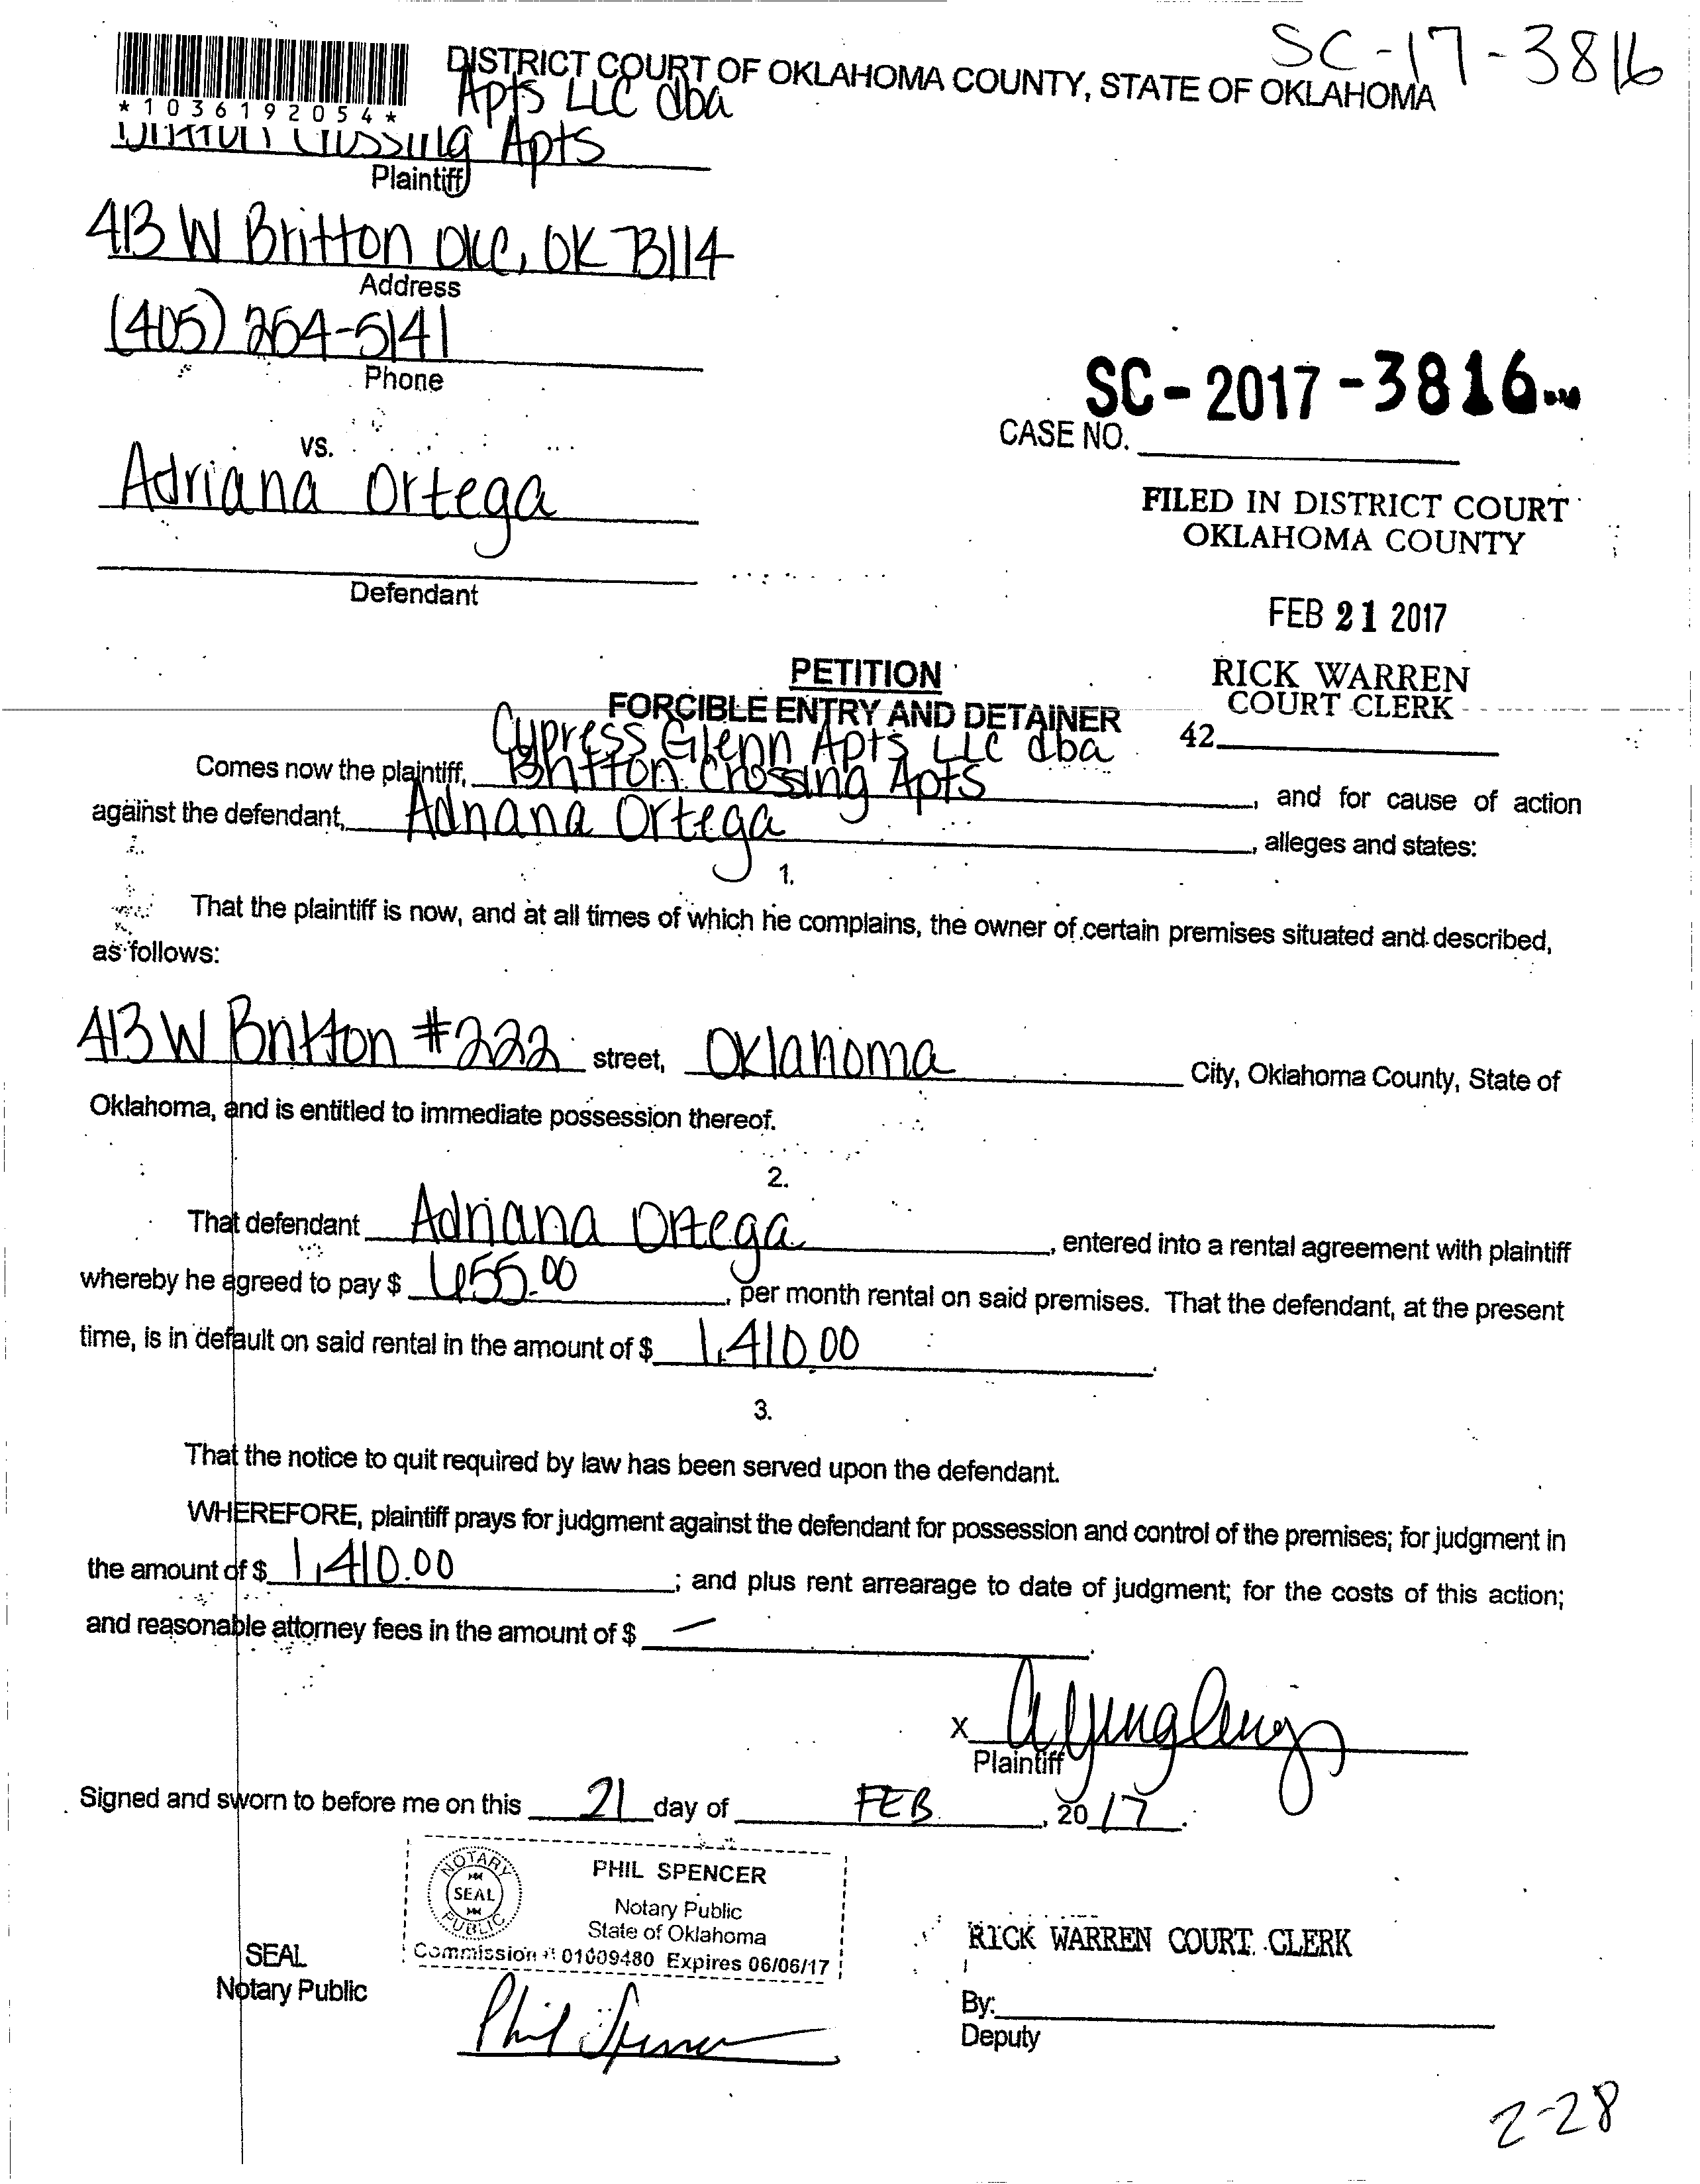 SC-17-3816
DISTRICT COURT OF OKLAHOMA COUNTY, STATE OF OKLAHOMA
*1036192054*
Apts LLC dba
Britton Crossing Apts
Plaintiff
413 W Britton OKC, OK 73114
Address
(405) 254-5141
Phone
SC-2017-3816
CASE NO.
vs.
Adriana Ortega
Defendant
FILED IN DISTRICT COURT
OKLAHOMA COUNTY
FEB 21 2017
RICK WARREN
COURT CLERK
42
PETITION
FORCIBLE ENTRY AND DETAINER
Cypress Glenn Apts LLC dba
Comes now the plaintiff, Britton Crossing Apts, and for cause of action
against the defendant, Adriana Ortega, alleges and states:
1.
That the plaintiff is now, and at all times of which he complains, the owner of certain premises situated and described,
as follows:
413 W Britton #222 street, Oklahoma City, Oklahoma County, State of
Oklahoma, and is entitled to immediate possession thereof.
2.
That defendant Adriana Ortega, entered into a rental agreement with plaintiff
whereby he agreed to pay $ 655.00, per month rental on said premises. That the defendant, at the present
time, is in default on said rental in the amount of $ 1,410.00.
3.
That the notice to quit required by law has been served upon the defendant.
WHEREFORE, plaintiff prays for judgment against the defendant for possession and control of the premises; for judgment in
the amount of $ 1,410.00; and plus rent arrearage to date of judgment; for the costs of this action;
and reasonable attorney fees in the amount of $ —.
X
Plaintiff
Signed and sworn to before me on this 21 day of FEB, 2017.
NOTARY PUBLIC SEAL
PHIL SPENCER
Notary Public
State of Oklahoma
Commission # 01009480 Expires 06/06/17
SEAL
Notary Public
Phil Spencer
RICK WARREN COURT CLERK
By:
Deputy
2-28